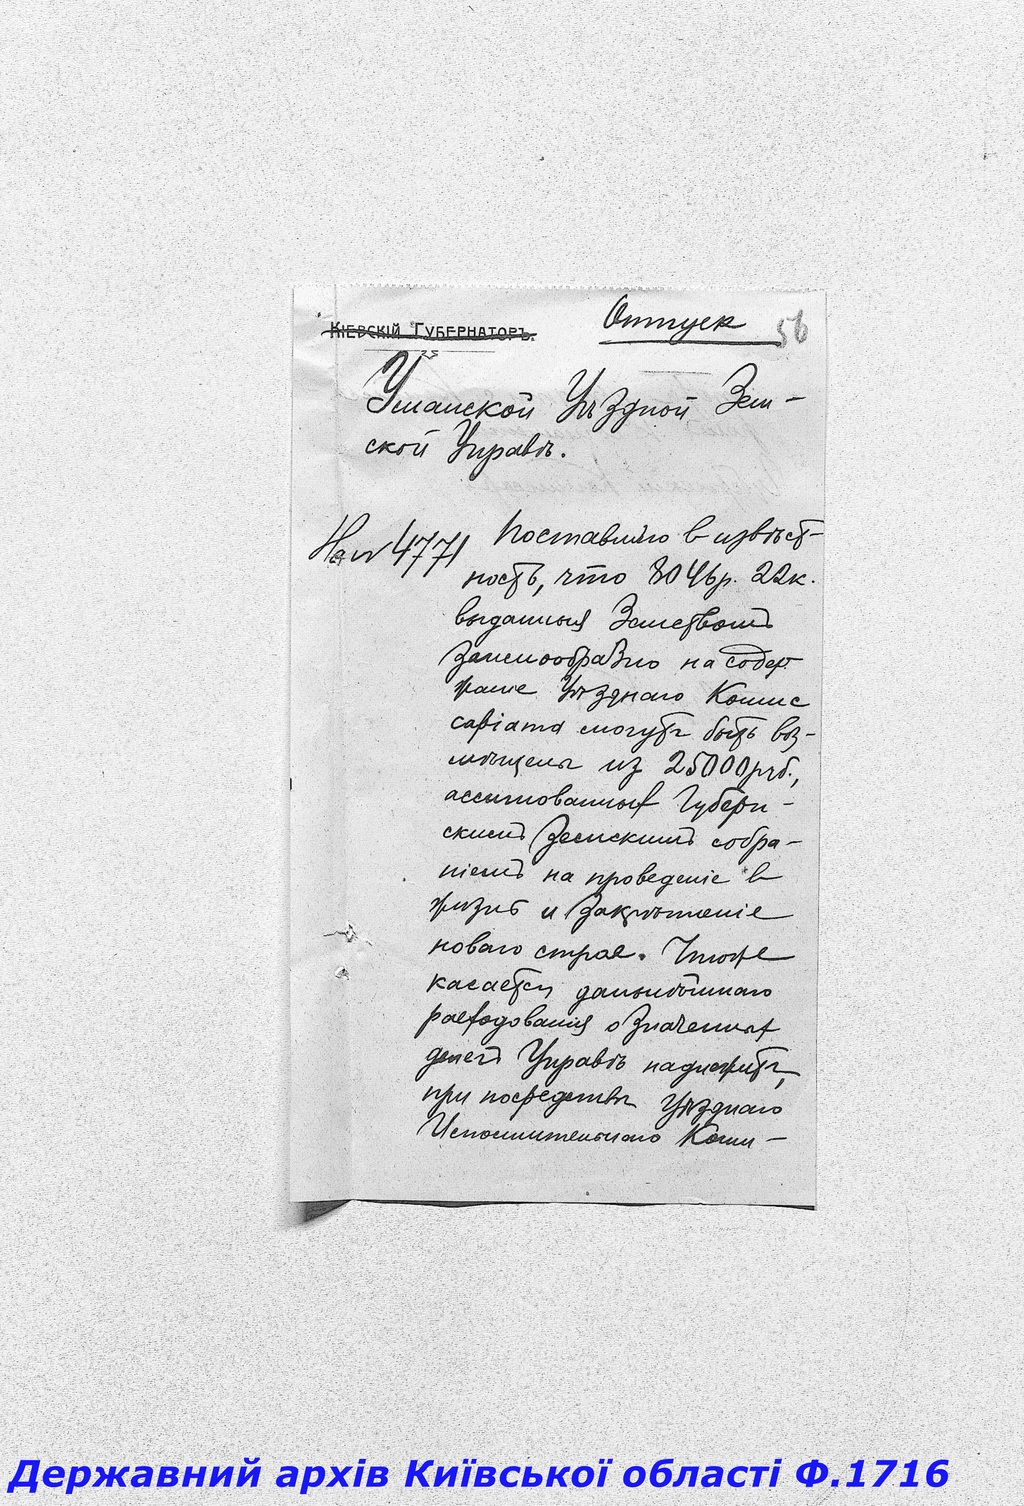 Кіевскій Губернаторъ.
Отпуск
56
Уманской Уѣздной Зем-
ской Управѣ.
На № 4771
Поставляю в извѣст-
ность, что 3046 р. 22 к.
выданныя Земством
заимообразно на содер
жаніе Уѣзднаго Комис
саріата могутъ быть воз-
мѣщены из 25000 руб.,
ассигнованных Губерн-
ским Земским собра-
ніем на проведеніе в
жизнь и закрѣпленіе
новаго строя. Что же
касается дальнѣйшаго
расходованія означенных
денег Управѣ надлежитъ,
при посредствѣ Уѣзднаго
Исполнительнаго Коми-
Державний архів Київської області Ф.1716